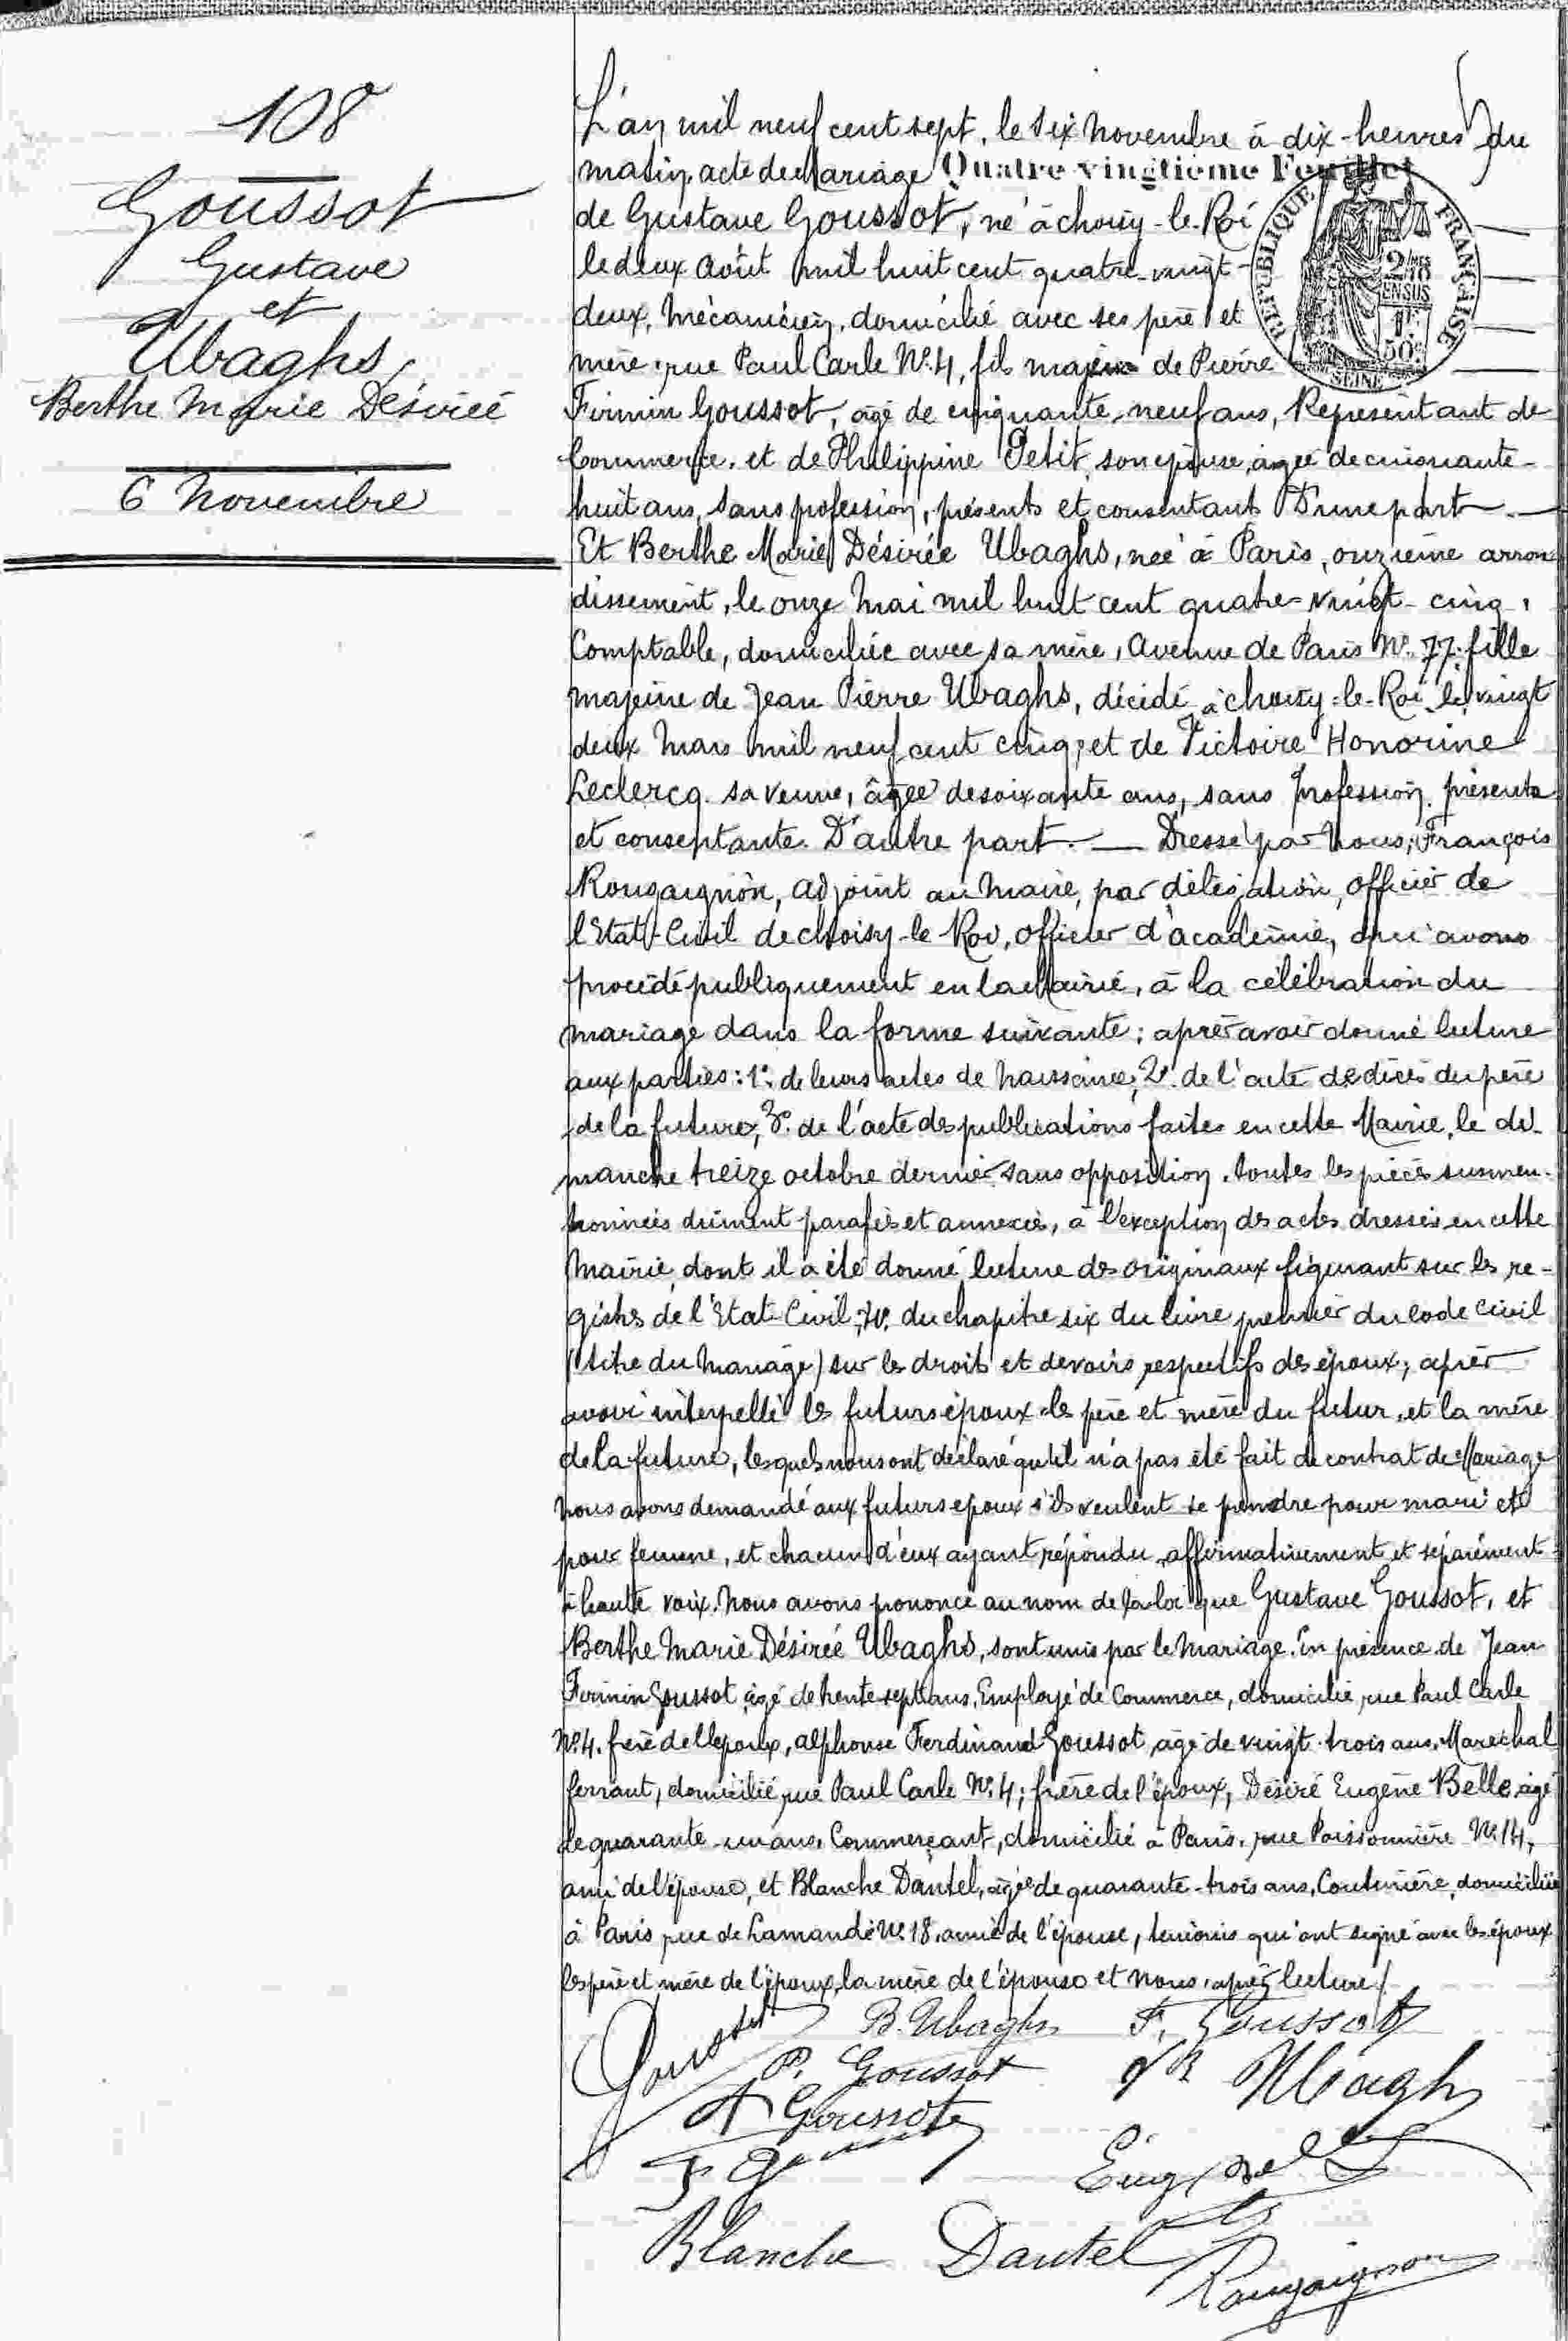 108
Goussot
Gustave
et
Ubaghs
Berthe Marie Désirée
6 Novembre
L'an mil neuf cent sept, le six novembre à dix heures du
matin, acte de Mariage Quatre vingtième Feuillet
de Gustave Goussot, né à choisy-le-Roi
le deux Août mil huit cent quatre-vingt-
deux, Mécanicien, domicilié avec ses père et
mère, rue Paul Carle N° 4, fils majeur de Pierre
RÉPUBLIQUE FRANÇAISE
2/10
EN SUS
1f
50c
SEINE
Firmin Goussot, âgé de cinquante-neuf ans, Représentant de
Commerce, et de Philippine Petit, son épouse, âgée de cinquante-
huit ans, sans profession, présents et consentants D'une part. —
Et Berthe Marie Désirée Ubaghs, née à Paris, onzième arron
dissement, le onze Mai mil huit cent quatre-vingt-cinq,
Comptable, domiciliée avec sa mère, Avenue de Paris N° 77, fille
majeure de Jean Pierre Ubaghs, décédé à choisy-le-Roi, le vingt
deux Mars mil neuf cent cinq; et de Victoire Honorine
Leclercq, sa veuve, âgée de soixante ans, sans profession, présente
et consentante. D'autre part. — Dressé par Nous, François
Rougaignon, adjoint au Maire, par délégation, officier de
l'Etat-Civil de choisy-le-Roi, officier d'académie, qui avons
procédé publiquement en la Mairie, à la célébration du
mariage dans la forme suivante: après avoir donné lecture
aux parties: 1° de leurs actes de Naissance, 2° de l'acte de décès du père
de la future, 3° de l'acte des publications faites en cette Mairie, le di-
manche treize octobre dernier, sans opposition, toutes les pièces susmen-
tionnées dûment parafées et annexées, à l'exception des actes dressés en cette
Mairie, dont il a été donné lecture des originaux figurant sur les re-
gistres de l'Etat-Civil, 4° du chapitre six du livre premier du Code Civil
(titre du Mariage) sur les droits et devoirs respectifs des époux; après
avoir interpellé les futurs époux, les père et mère du futur, et la mère
de la future, lesquels nous ont déclaré qu'il n'a pas été fait de contrat de Mariage
Nous avons demandé aux futurs époux s'ils veulent se prendre pour mari et
pour femme, et chacun d'eux ayant répondu affirmativement et séparément
à haute voix, Nous avons prononcé au nom de la loi que Gustave Goussot, et
Berthe Marie Désirée Ubaghs, sont unis par le Mariage. En présence de Jean
Firmin Goussot, âgé de trente-sept ans, Employé de Commerce, domicilié, rue Paul Carle
N° 4, frère de l'époux, Alphonse Ferdinand Goussot, âgé de vingt-trois ans, Maréchal
ferrant, domicilié, rue Paul Carle N° 4; frère de l'époux, Désiré Eugène Belle, âgé
de quarante-un ans, Commerçant, domicilié à Paris, rue Poissonnière N° 14,
ami de l'épouse, et Blanche Dautel, âgée de quarante-trois ans, Couturière, domiciliée
à Paris, rue de Lamandé N° 18, amie de l'épouse, témoins qui ont signé avec les époux
les père et mère de l'époux, la mère de l'épouse et Nous, après lecture./.
Goussot B. Ubaghs F. Goussot
P. Goussot Vve Ubaghs
A Goussot
Blanche Dautel Rougaignon